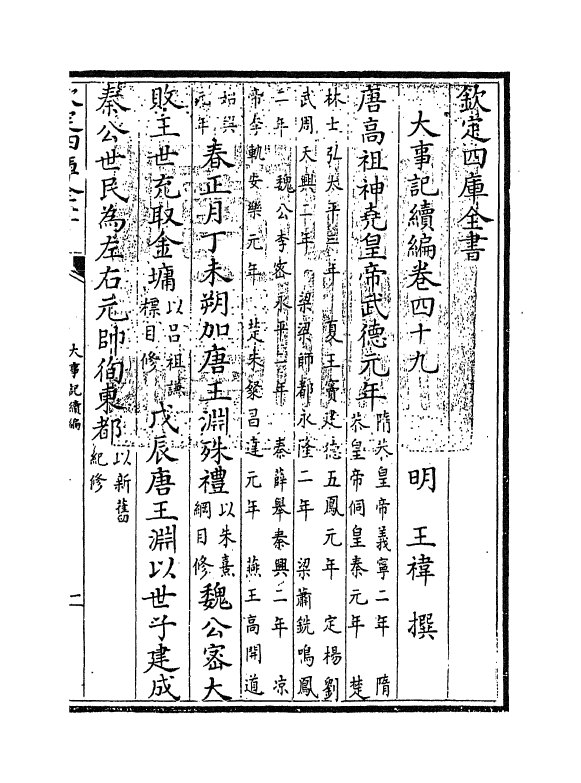 欽定四庫全書
大事記續編卷四十九 明 王禕 撰
唐高祖神堯皇帝武德元年
隋恭皇帝義寧二年 隋
恭皇帝侗皇泰元年 楚
林士弘太平三年 夏王竇建德五鳳元年 定楊劉
武周天興二年 梁梁師都永隆二年 梁蕭銑鳴鳳
二年 魏公李密永平二年 秦薛舉秦興二年 涼
帝李軌安樂元年 楚朱粲昌達元年 燕王高開道
始興
元年
春正月丁未朔加唐王淵殊禮
以朱熹
綱目修
魏公密大
敗王世充取金墉
以呂祖謙
標目修
戊辰唐王淵以世子建成
秦公世民為左右元帥徇東都
以新舊
紀修
大事記續編
二